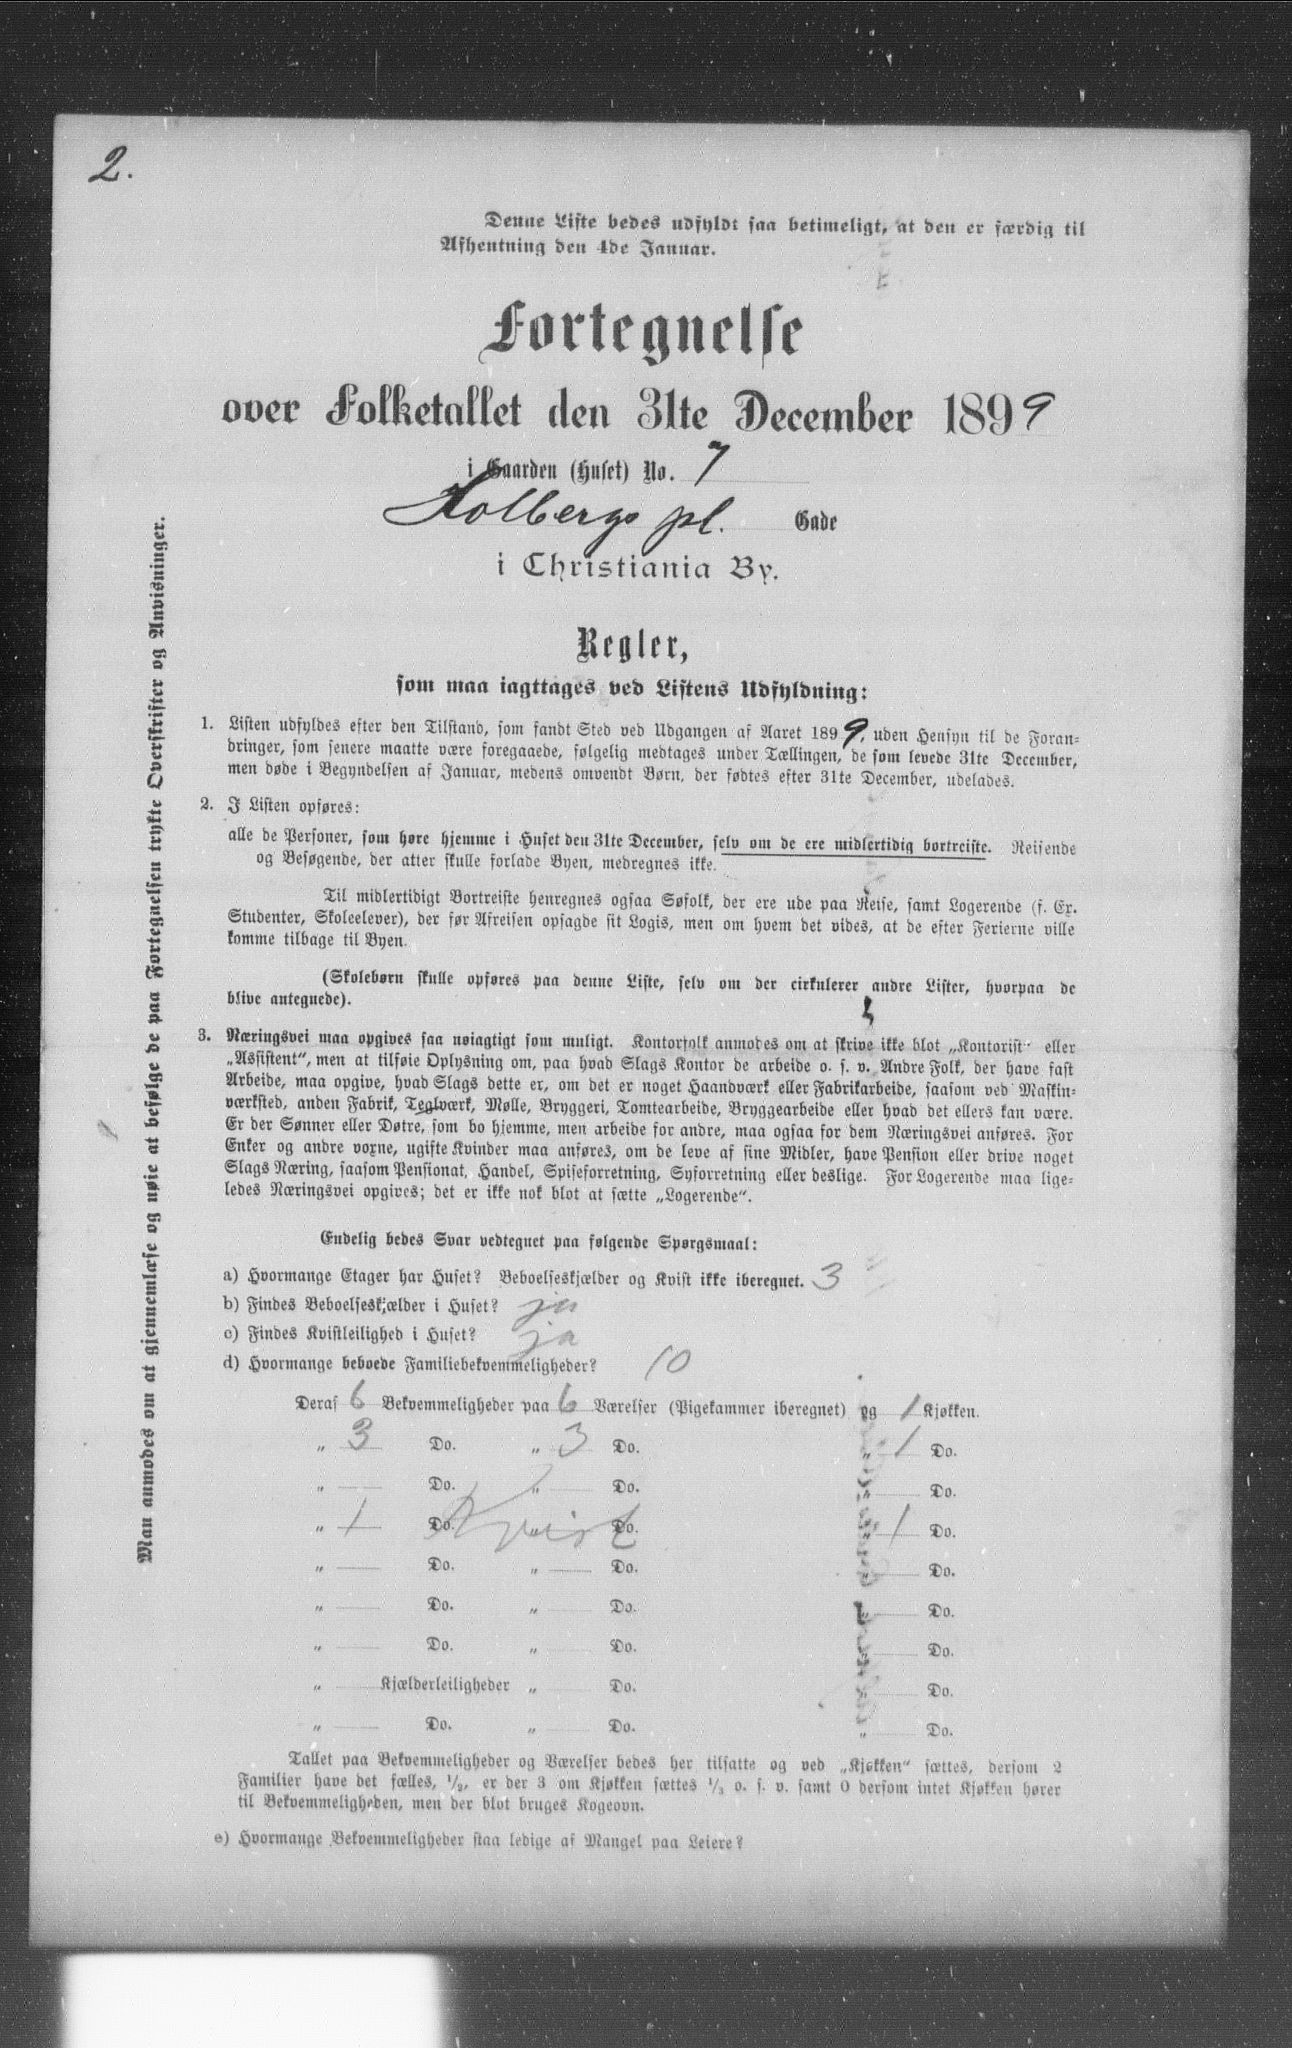 2.
Denne Liste bedes udfyldt saa betimeligt, at den er færdig til
Afhentning den 4de Januar.
Fortegnelse
over Folketallet den 31te December 1899
i Gaarden (Huset) No. 7
Holbergs pl. Gade
i Christiania By.
Regler,
som maa iagttages ved Listens Udfyldning:
1. Listen udfyldes efter den Tilstand, som fandt Sted ved Udgangen af Aaret 1899, uden Hensyn til de Foran-
dringer, som senere maatte være foregaaede, følgelig medtages under Tællingen, de som levede 31te December,
men døde i Begyndelsen af Januar, medens omvendt Børn, der fødtes efter 31te December, udelades.
2. I Listen opføres:
alle de Personer, som høre hjemme i Huset den 31te December, selv om de ere midlertidig bortreiste. Reisende
og Besøgende, der atter skulle forlade Byen, medregnes ikke.
Til midlertidigt Bortreiste henregnes ogsaa Søfolk, der ere ude paa Reise, samt Logerende (f. Ex.
Studenter, Skoleelever), der før Afreisen opsagde sit Logis, men om hvem det vides, at de efter Ferierne ville
komme tilbage til Byen.
(Skolebørn skulle opføres paa denne Liste, selv om der cirkulerer andre Lister, hvorpaa de
blive antegnede).
3. Næringsvei maa opgives saa nøiagtigt som muligt. Kontorfolk anmodes om at skrive ikke blot „Kontorist“ eller
„Assistent“, men at tilføie Oplysning om, paa hvad Slags Kontor de arbeide o. s. v. Andre Folk, der have fast
Arbeide, maa opgive, hvad Slags dette er, om det er noget Haandværk eller Fabrikarbeide, saasom ved Maskin-
værksted, anden Fabrik, Teglværk, Mølle, Bryggeri, Tomtearbeide, Bryggearbeide eller hvad det ellers kan være.
Er der Sønner eller Døtre, som bo hjemme, men arbeide for andre, maa ogsaa for dem Næringsvei anføres. For
Enker og andre voxne, ugifte Kvinder maa anføres, om de leve af sine Midler, have Pension eller drive noget
Slags Næring, saasom Pensionat, Handel, Spiseforretning, Syforretning eller deslige. For Logerende maa lige-
ledes Næringsvei opgives; det er ikke nok blot at sætte „Logerende“.
Endelig bedes Svar vedtegnet paa følgende Spørgsmaal:
a) Hvormange Etager har Huset? Beboelseskjælder og Kvist ikke iberegnet. 3
b) Findes Beboelseskjælder i Huset? ja
c) Findes Kvistleilighed i Huset? ja
d) Hvormange beboede Familiebekvemmeligheder? 10
Deraf 6 Bekvemmeligheder paa 6 Værelser (Pigekammer iberegnet) og 1 Kjøkken.
„ 3 Do. „ 3 Do. „ 1 Do.
„ Do. „ Do. „ Do.
„ 1 Do. Kvist Do. „ 1 Do.
„ Do. „ Do. „ Do.
„ Do. „ Do. „ Do.
„ Do. „ Do. „ Do.
„ Kjælderleiligheder „ Do. „ Do.
„ Do. „ Do. „ Do.
Tallet paa Bekvemmeligheder og Værelser bedes her tilsatte og ved „Kjøkken“ sættes, dersom 2
Familier have det fælles, 1/2, er der 3 om Kjøkken sættes 1/3 o. s. v. samt 0 dersom intet Kjøkken hører
til Bekvemmeligheden, men der blot bruges Kogeovn.
e) Hvormange Bekvemmeligheder staa ledige af Mangel paa Leiere?
Man anmodes om at gjennemlæse og nøie at befølge de paa Fortegnelsen trykte Overskrifter og Anvisninger.